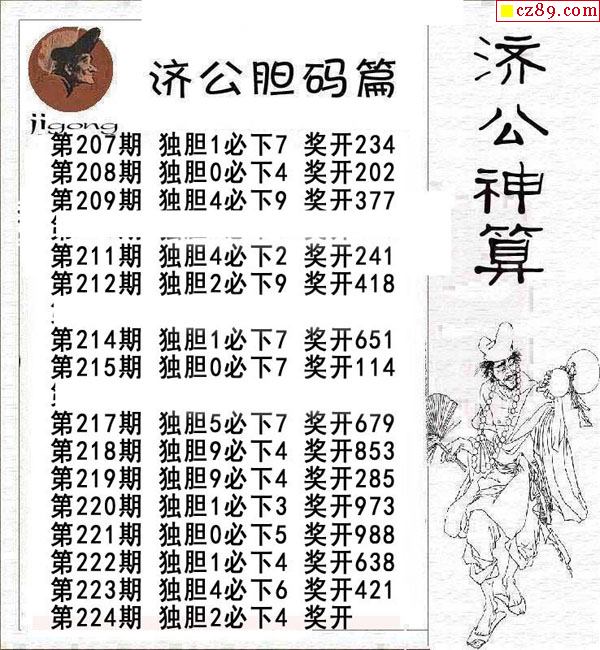 cz89.com
济公胆码篇
济公神算
jigong
第207期 独胆1必下7 奖开234
第208期 独胆0必下4 奖开202
第209期 独胆4必下9 奖开377
第211期 独胆4必下2 奖开241
第212期 独胆2必下9 奖开418
第214期 独胆1必下7 奖开651
第215期 独胆0必下7 奖开114
第217期 独胆5必下7 奖开679
第218期 独胆9必下4 奖开853
第219期 独胆9必下4 奖开285
第220期 独胆1必下3 奖开973
第221期 独胆0必下5 奖开988
第222期 独胆1必下4 奖开638
第223期 独胆4必下6 奖开421
第224期 独胆2必下4 奖开